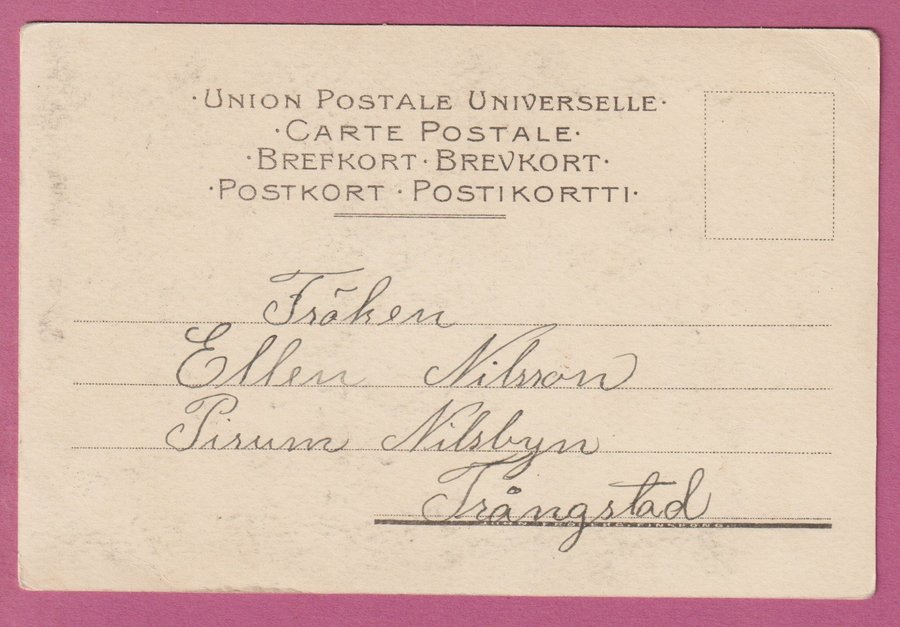 ·UNION POSTALE UNIVERSELLE·
·CARTE POSTALE·
·BREFKORT·BREVKORT·
·POSTKORT·POSTIKORTTI·
Fröken
Ellen Nilsson
Pisum Nilsbyn
Trångstad